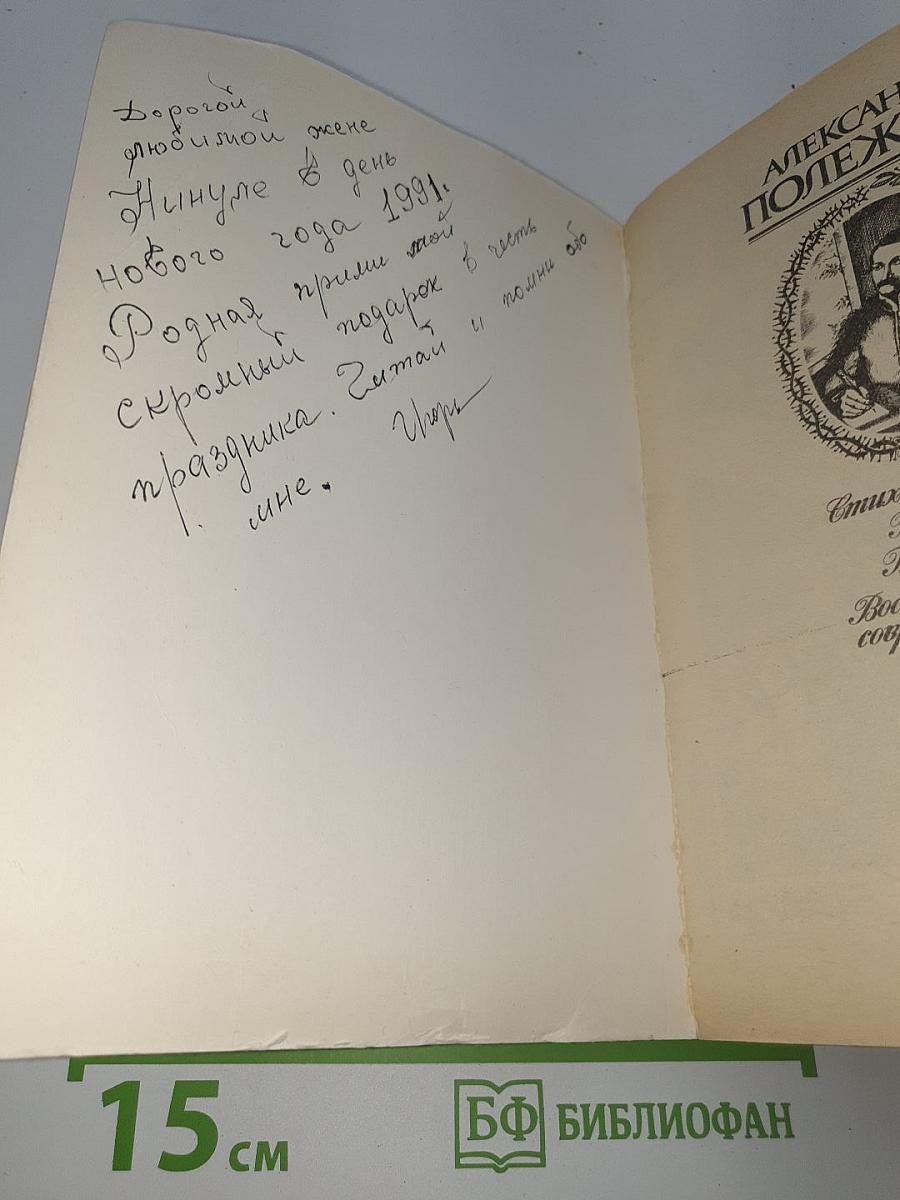 Дорогой
любимой жене
Нинуле в день
нового года 1991г.
Родная прими мой
скромный подарок в честь
праздника. Читай и помни обо
мне. Игорь
АЛЕКСАН
ПОЛЕЖ
Стих
Вос
совр
15 см
БФ БИБЛИОФАН